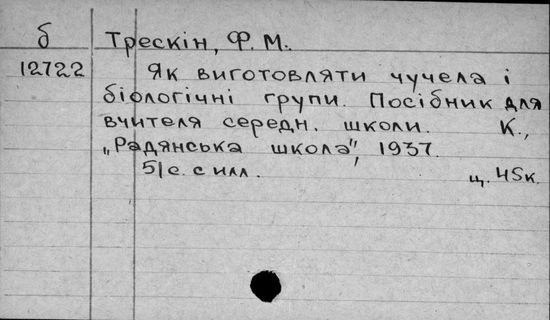 б
Трескін, Ф. М.
12722
Як виготовляти чучела і
біологічні групи. Посібник для
вчителя середн. школи. К.,
„Радянська школа", 1937.
51с. с илл.
ц. 45к.